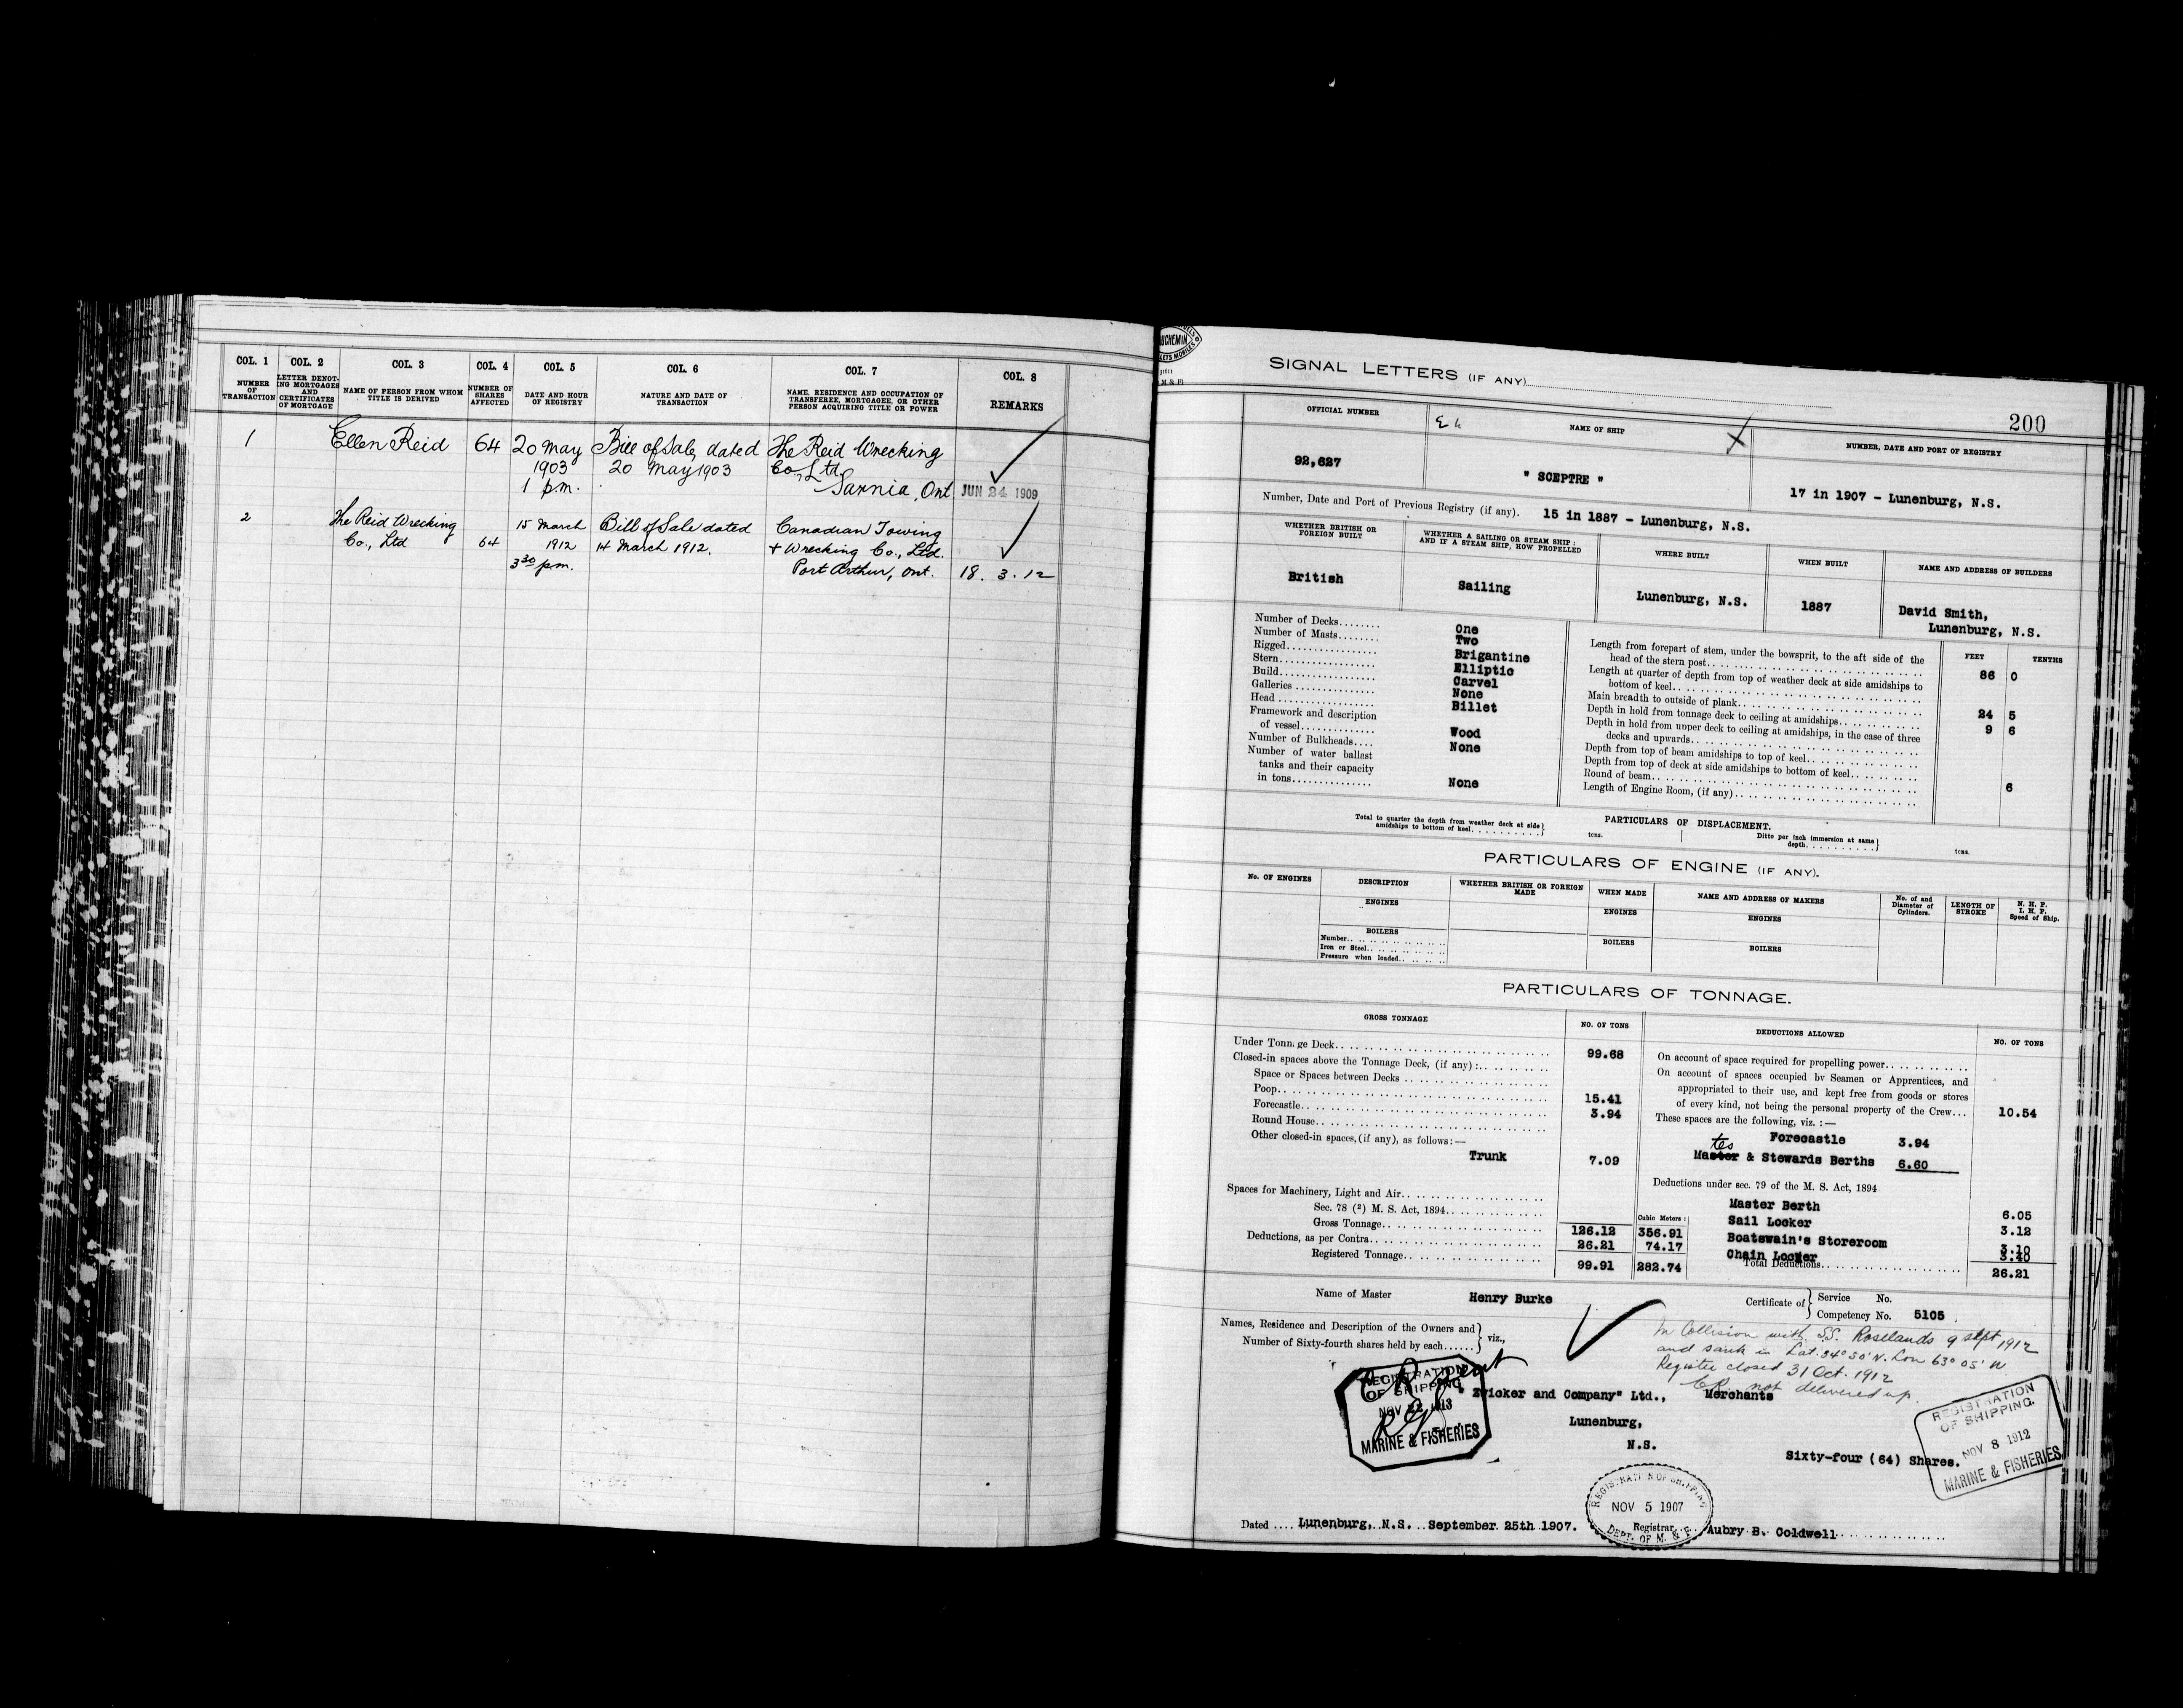 COL. 1 COL. 2 COL. 3 COL. 4 COL. 5 COL. 6 COL. 7 COL. 8
NUMBER OF TRANSACTION
LETTER DENOTING MORTGAGES AND CERTIFICATES OF MORTGAGE
NAME OF PERSON FROM WHOM TITLE IS DERIVED
NUMBER OF SHARES AFFECTED
DATE AND HOUR OF REGISTRY
NATURE AND DATE OF TRANSACTION
NAME, RESIDENCE AND OCCUPATION OF TRANSFEREE, MORTGAGEE, OR OTHER PERSON ACQUIRING TITLE OR POWER
REMARKS
1 Ellen Reid 64 20 May Bill of Sale, dated The Reid Wrecking
1903 20 May 1903 Co., Ltd
1 p.m. Sarnia, Ont JUN 24 1909
2 The Reid Wrecking 15 March Bill of Sale dated Canadian Towing
Co., Ltd 64 1912 14 March 1912. + Wrecking Co., Ltd.
3 30 p.m. Port Arthur, Ont. 18. 3. 12
SIGNAL LETTERS (IF ANY)
200
OFFICIAL NUMBER NAME OF SHIP X NUMBER, DATE AND PORT OF REGISTRY
92,627 " SCEPTRE " 17 in 1907 - Lunenburg, N.S.
Number, Date and Port of Previous Registry (if any). 15 in 1887 - Lunenburg, N.S.
WHETHER BRITISH OR FOREIGN BUILT
WHETHER A SAILING OR STEAM SHIP; AND IF A STEAM SHIP, HOW PROPELLED
WHERE BUILT WHEN BUILT NAME AND ADDRESS OF BUILDERS
British Sailing Lunenburg, N.S. 1887 David Smith,
Lunenburg, N.S.
Number of Decks........ One
Number of Masts........ Two
Rigged................ Brigantine
Stern................ Elliptic
Build................ Carvel
Galleries ............ None
Head ................ Billet
Framework and description
of vessel.............. Wood
Number of Bulkheads.... None
Number of water ballast
tanks and their capacity
in tons............... None
FEET TENTHS
Length from forepart of stem, under the bowsprit, to the aft side of the
head of the stern post........ 86 0
Length at quarter of depth from top of weather deck at side amidships to
bottom of keel........
Main breadth to outside of plank........ 24 5
Depth in hold from tonnage deck to ceiling at amidships........ 9 6
Depth in hold from upper deck to ceiling at amidships, in the case of three
decks and upwards........
Depth from top of beam amidships to top of keel........
Depth from top of deck at side amidships to bottom of keel........
Round of beam........ 6
Length of Engine Room, (if any)........
PARTICULARS OF DISPLACEMENT.
Total to quarter the depth from weather deck at side
amidships to bottom of keel........ tons.
Ditto per inch immersion at same
depth........ tons.
PARTICULARS OF ENGINE (IF ANY).
No. OF ENGINES DESCRIPTION WHETHER BRITISH OR FOREIGN MADE WHEN MADE NAME AND ADDRESS OF MAKERS No. of and Diameter of Cylinders. LENGTH OF STROKE N. H. P. I. H. P. Speed of Ship.
ENGINES ENGINES ENGINES
BOILERS BOILERS BOILERS
Number........
Iron or Steel........
Pressure when loaded........
PARTICULARS OF TONNAGE.
GROSS TONNAGE NO. OF TONS
Under Tonnage Deck........ 99.68
Closed-in spaces above the Tonnage Deck, (if any):........
Space or Spaces between Decks ........
Poop........ 15.41
Forecastle........ 3.94
Round House........
Other closed-in spaces,(if any), as follows:—
Trunk 7.09
Spaces for Machinery, Light and Air........
Sec. 78 (2) M. S. Act, 1894........
Cubic Meters:
Gross Tonnage........ 126.12 356.91
Deductions, as per Contra........ 26.21 74.17
Registered Tonnage........ 99.91 282.74
DEDUCTIONS ALLOWED NO. OF TONS
On account of space required for propelling power........
On account of spaces occupied by Seamen or Apprentices, and
appropriated to their use, and kept free from goods or stores
of every kind, not being the personal property of the Crew... 10.54
These spaces are the following, viz. :—
Forecastle 3.94
tes
Master & Stewards Berths 6.60
Deductions under sec. 79 of the M. S. Act, 1894
Master Berth 6.05
Sail Locker 3.12
Boatswain's Storeroom 3.10
Chain Locker 3.40
Total Deductions........ 26.21
Name of Master Henry Burke Certificate of Service No.
Competency No. 5105
Names, Residence and Description of the Owners and
Number of Sixty-fourth shares held by each...... viz.,
In Collision with S.S. Roselands 9 Sept 1912
and sank in Lat. 34° 50' N. Lon 63° 05' W
Register closed 31 Oct. 1912
C.R. not delivered up.
REGISTRATION
OF SHIPPING
NOV 22 1913
MARINE & FISHERIES
" Zwicker and Company" Ltd., Merchants
Lunenburg,
N.S.
Sixty-four (64) Shares.
REGISTRATION
OF SHIPPING.
NOV 8 1912
MARINE & FISHERIES
REGISTRATION OF SHIPPING
NOV 5 1907
DEPT. OF M. & F.
Dated .... Lunenburg, N.S. September 25th 1907. Registrar Aubry B. Coldwell